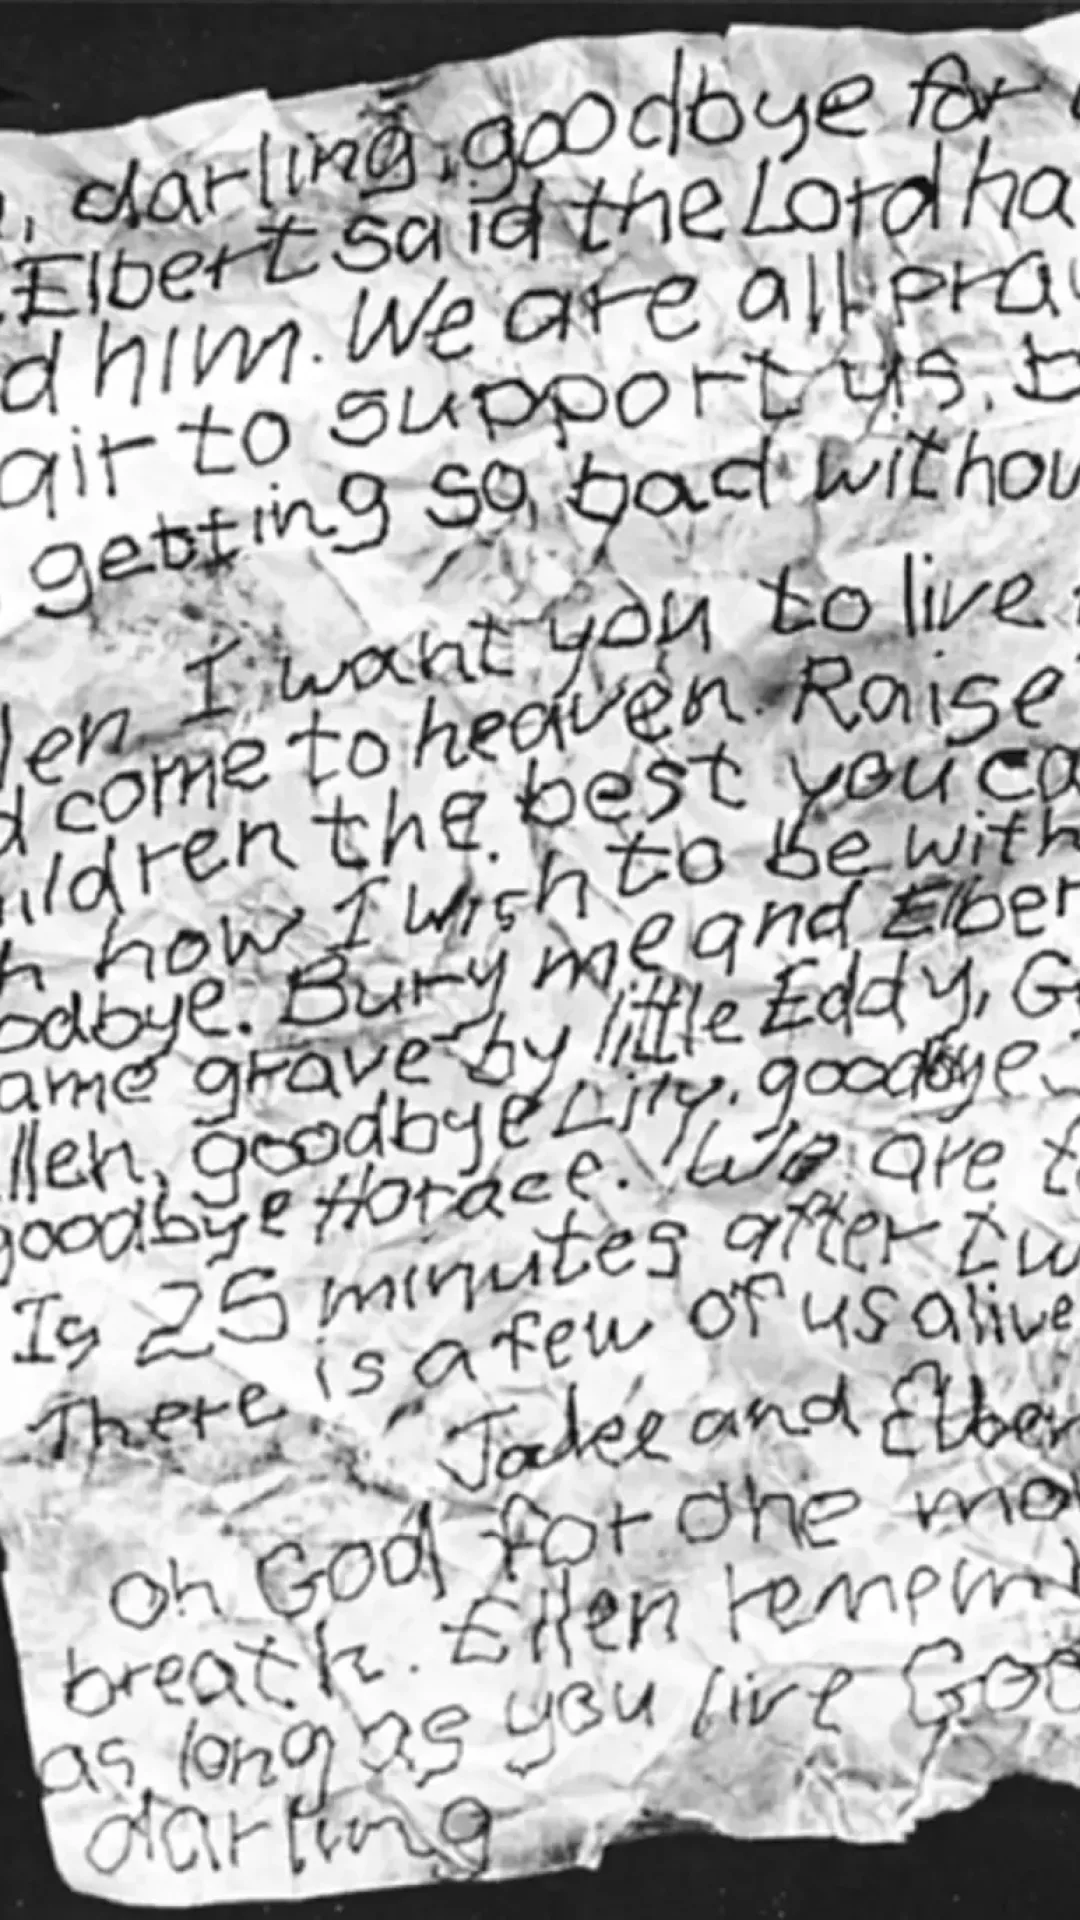 darling, goodbye for
Elbert said the Lord ha
d him. We are all pra
air to support us, b
getting so bad withou
len I want you to live
d come to heaven. Raise
ildren the best you ca
h how I wish to be with
odbye. Bury me and Elber
ame grave by little Eddy, G
llen, goodbye Lily, goodbye
goodbye Horace. We are t
Is 25 minutes after tw
There is a few of us alive
Jakee and Elber
Oh God for one mo
breath. Ellen rememb
as long as you live Goo
darling